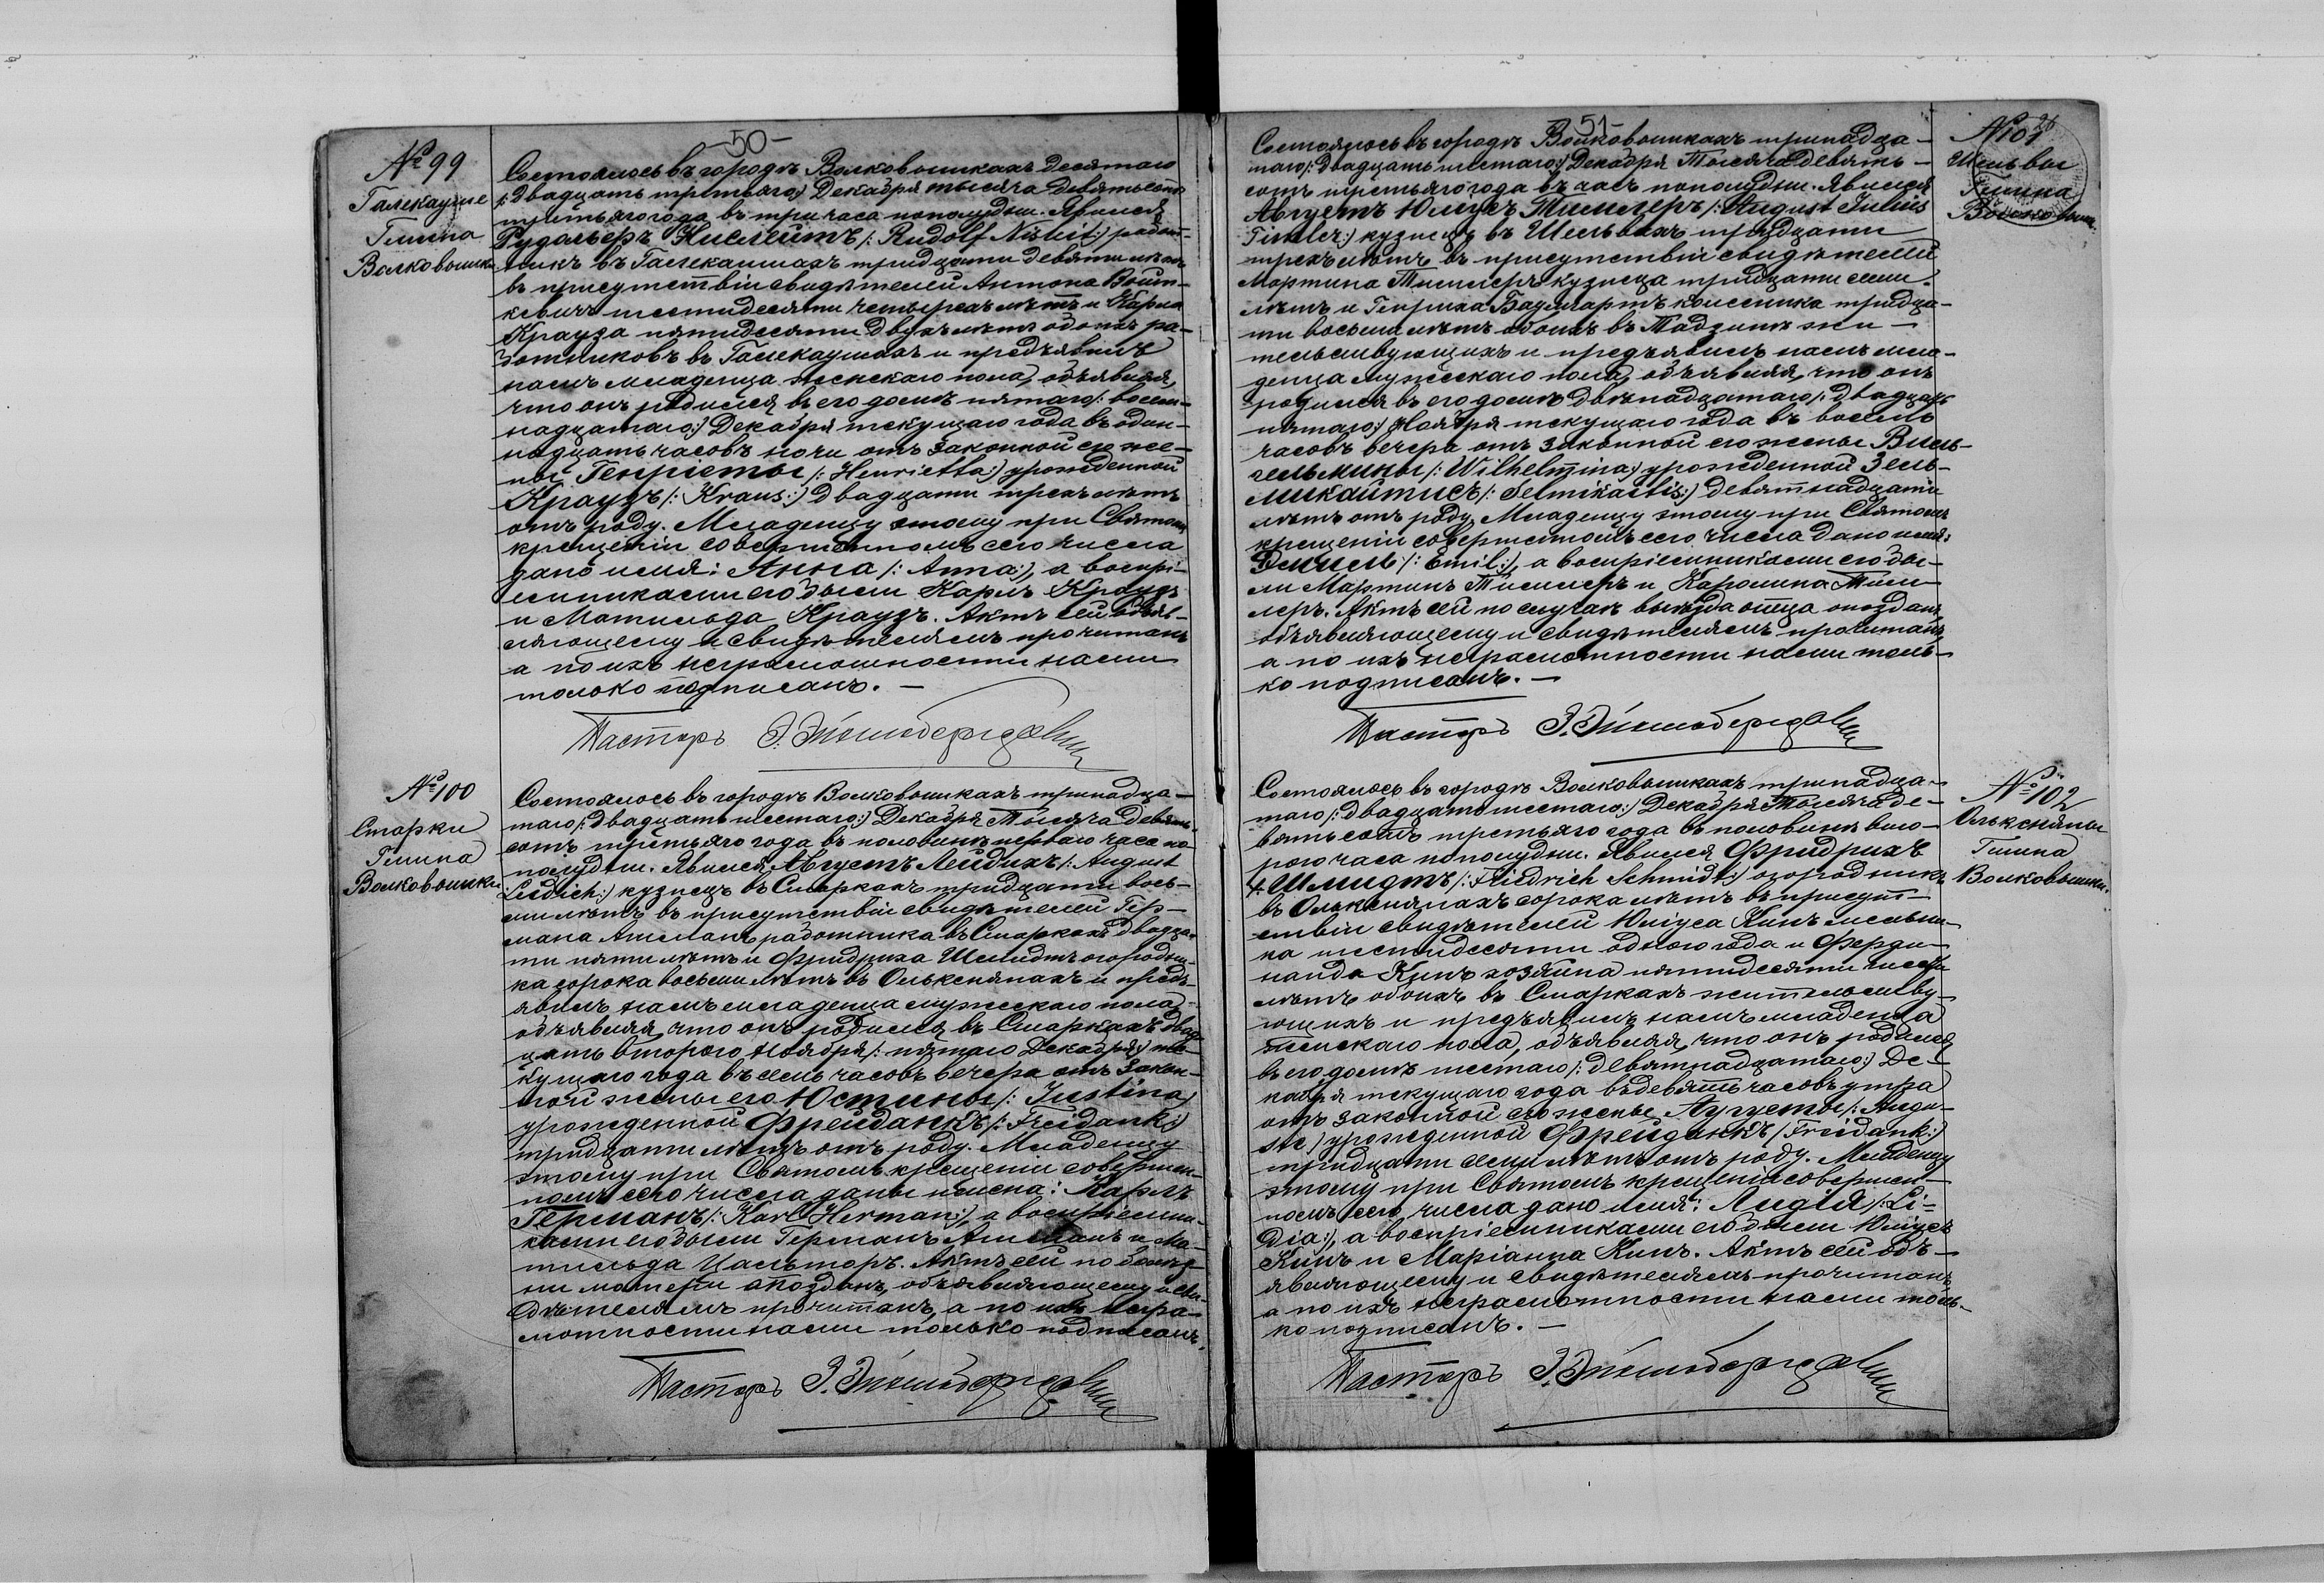 -50-
№ 99
Галекауше
Гмина
Волковышки
Состоялось въ городѣ Волковышкахъ десятаго
/: двадцать третьяго:/ Декабря тысяча девятьсотъ
третьяго года въ три часа пополудни. Явился
Рудольфъ Нислейтъ /: Rudolf Nisleit:/ работ-
никъ въ тридцати девяти лѣтъ
въ присутствіи свидѣтелей Антона Войт-
кевича шестидесяти четырехъ лѣтъ и Карла
Крауза пятидесяти двухъ лѣтъ обоихъ ра-
ботниковъ въ Галекаушахъ и предъявилъ
намъ младенца женскаго пола, объявляя,
что онъ родился въ его домѣ пятаго /: восем-
надцатаго:/ Декабря текущаго года въ один-
надцать часовъ ночи отъ законной его же-
ны Генріеты /: Henrietta:/ урожденной
Краузъ /: Kraus:/ двадцати трехъ лѣтъ
отъ роду. Младенцу этому при Святомъ
крещеніи совершонномъ сего числа
дано имя: Анна /: Anna:/, а воспрі-
емниками его были Карлъ Краузъ
и Матильда Краузъ. Актъ сей объяв-
ляющему и свидѣтелямъ прочитанъ
а по ихъ неграмотности нами
только подписанъ. —
Пасторъ
№ 100
Старки
Гмина
Волковышки
Состоялось въ городѣ Волковышкахъ тринадца-
таго /: двадцать шестаго:/ Декабря Тысяча девять-
сотъ третьяго года въ половинѣ перваго часа по-
полудни. Явился Августъ Лейдихъ /: August
Leidich:/ кузнецъ въ Старкахъ тридцати вось-
ми лѣтъ въ присутствіи свидѣтелей Гер-
мана работника въ Старкахъ двадца-
ти пяти лѣтъ и Фридриха Шмидтъ огородни-
ка сорока восьми лѣтъ въ Олькснянахъ и предъ-
явилъ намъ младенца мужескаго пола
объявляя, что онъ родился въ Старкахъ двад-
цать втораго Ноября /: пятаго Декабря:/ те-
кущаго года въ семь часовъ вечера отъ закон-
ной жены его Юстины /: Justina/
урожденной Фрейданкъ /: Freidank:/
тридцати лѣтъ отъ роду. Младенцу
этому при Святомъ крещеніи совершон-
номъ сего числа даны имена: Карлъ
Германъ /: Karl Herman:/, а воспріемни-
ками его были Германъ и Ма-
тильда Актъ сей по болѣз-
ни матери опозданъ, объявляющему и сви-
дѣтелямъ прочитанъ, а по ихъ негра-
мотности нами только подписанъ.
Пасторъ
51
26
№ 101
Гмина
Состоялось въ городѣ Волковышкахъ тринадца-
таго /: двадцать шестаго:/ Декабря Тысяча девять-
сотъ третьяго года въ часъ пополудни. Явился
Августъ Юліусъ Тимлеръ /: August Julius
Timler:/ кузнецъ въ тридцати
трехъ лѣтъ въ присутствіи свидѣтелей
Мартина Тимлеръ кузнеца тридцати семи
лѣтъ и Генриха Баумгартъ тридца-
ти восьми лѣтъ обоихъ въ жи-
тельствующихъ и предъявилъ намъ мла-
денца мужескаго пола, объявляя, что онъ
родился въ его домѣ двѣнадцатаго /: двадцать
пятаго:/ Ноября текущаго года въ восемь
часовъ вечера отъ законной его жены Виль-
гельмины /: Wilhelmina:/ урожденной Зель-
микайтисъ /: Selmikaitis:/ девятнадцати
лѣтъ отъ роду. Младенцу этому при Святомъ
крещеніи совершонномъ сего числа дано имя:
Эмиль /: Emil:/, а воспріемниками его бы-
ли Мартинъ Тимлеръ и Каролина Тим-
леръ. Актъ сей по случаю выѣзда отца опозданъ
объявляющему и свидѣтелямъ прочитанъ,
а по ихъ неграмотности нами толь-
ко подписанъ. —
Пасторъ
№ 102
Олькснаны
Гмина
Волковышки
Состоялось въ городѣ Волковышкахъ тринадца-
таго /: двадцать шестаго:/ Декабря Тысяча де-
вятьсотъ третьяго года въ половинѣ вто-
рого часа пополудни. Явился Фридрихъ
Шмидтъ /: Friedrich Schmidt:/ огородникъ
въ Олькснянахъ сорока лѣтъ въ присут-
ствіи свидѣтелей Юліуса Кинъ мельни-
ка шестидесяти одного года и Ферди-
нанда Кинъ хозяина пятидесяти шести
лѣтъ обоихъ въ Старкахъ жительству-
ющихъ и предъявилъ намъ младенца
женскаго пола, объявляя, что онъ родился
въ его домѣ шестаго /: девятнадцатаго:/ Де-
кабря текущаго года въ девять часовъ утра
отъ законной его жены Аугусты /: Augu-
ste/ урожденной Фрейданкъ /: Freidank:/
тридцати семи лѣтъ отъ роду. Младенцу
этому при Святомъ крещеніи совершон-
номъ сего числа дано имя: Лидія /: Li-
dia:/, а воспріемниками его были Юліусъ
Кинъ и Маріанна Кинъ. Актъ сей объ-
являющему и свидѣтелямъ прочитанъ
а по ихъ неграмотности нами толь-
ко подписанъ. —
Пасторъ